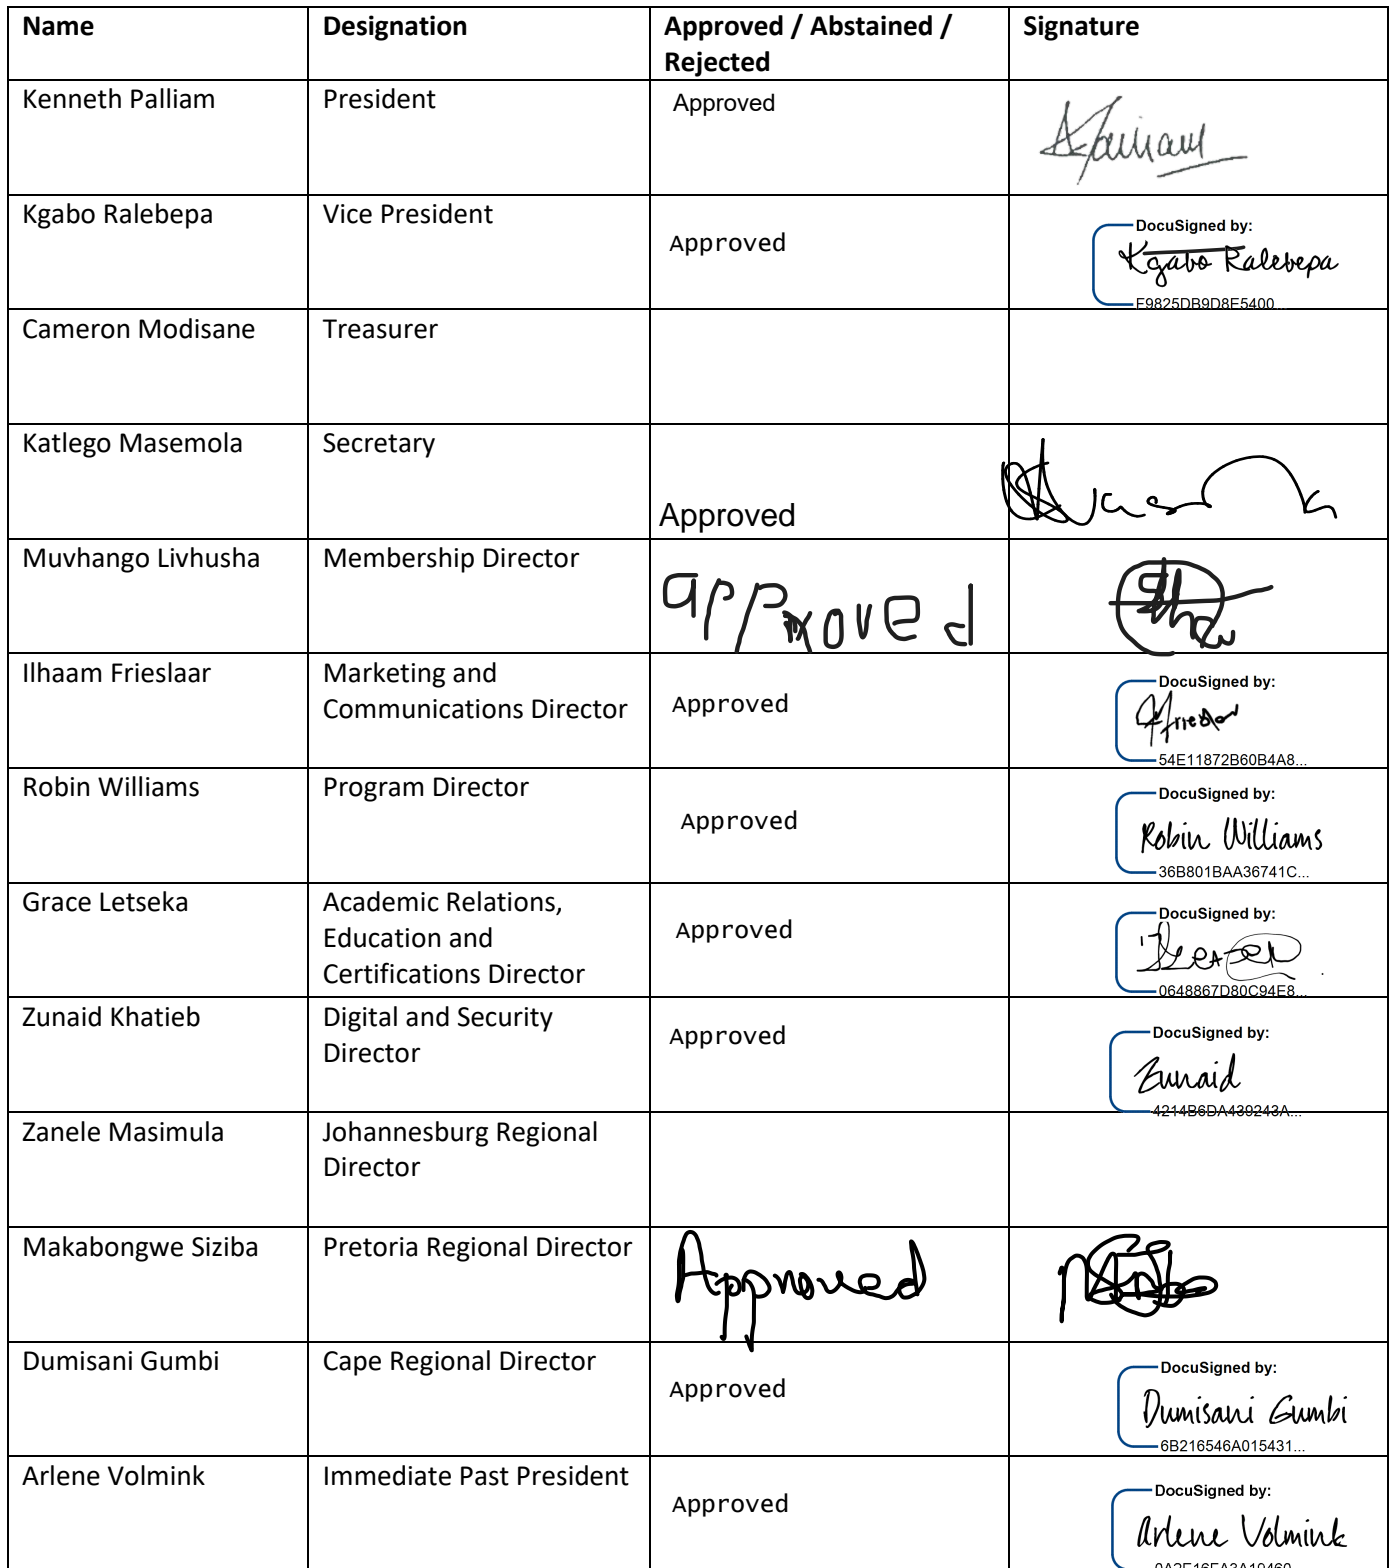 Name Designation Approved / Abstained / Signature
Rejected
Kenneth Palliam President Approved
Kgabo Ralebepa Vice President Approved DocuSigned by:
Kgabo Ralebepa
F9825DB9D8E5400...
Cameron Modisane Treasurer
Katlego Masemola Secretary
Approved
Muvhango Livhusha Membership Director approved
Ilhaam Frieslaar Marketing and DocuSigned by:
Communications Director Approved
54E11872B60B4A8...
Robin Williams Program Director DocuSigned by:
Approved Robin Williams
36B801BAA36741C...
Grace Letseka Academic Relations, DocuSigned by:
Education and Approved
Certifications Director
0648867D80C94E8...
Zunaid Khatieb Digital and Security Approved DocuSigned by:
Director
Zunaid
4214B6DA439243A...
Zanele Masimula Johannesburg Regional
Director
Makabongwe Siziba Pretoria Regional Director Approved
Dumisani Gumbi Cape Regional Director DocuSigned by:
Approved Dumisani Gumbi
6B216546A015431...
Arlene Volmink Immediate Past President DocuSigned by:
Approved Arlene Volmink